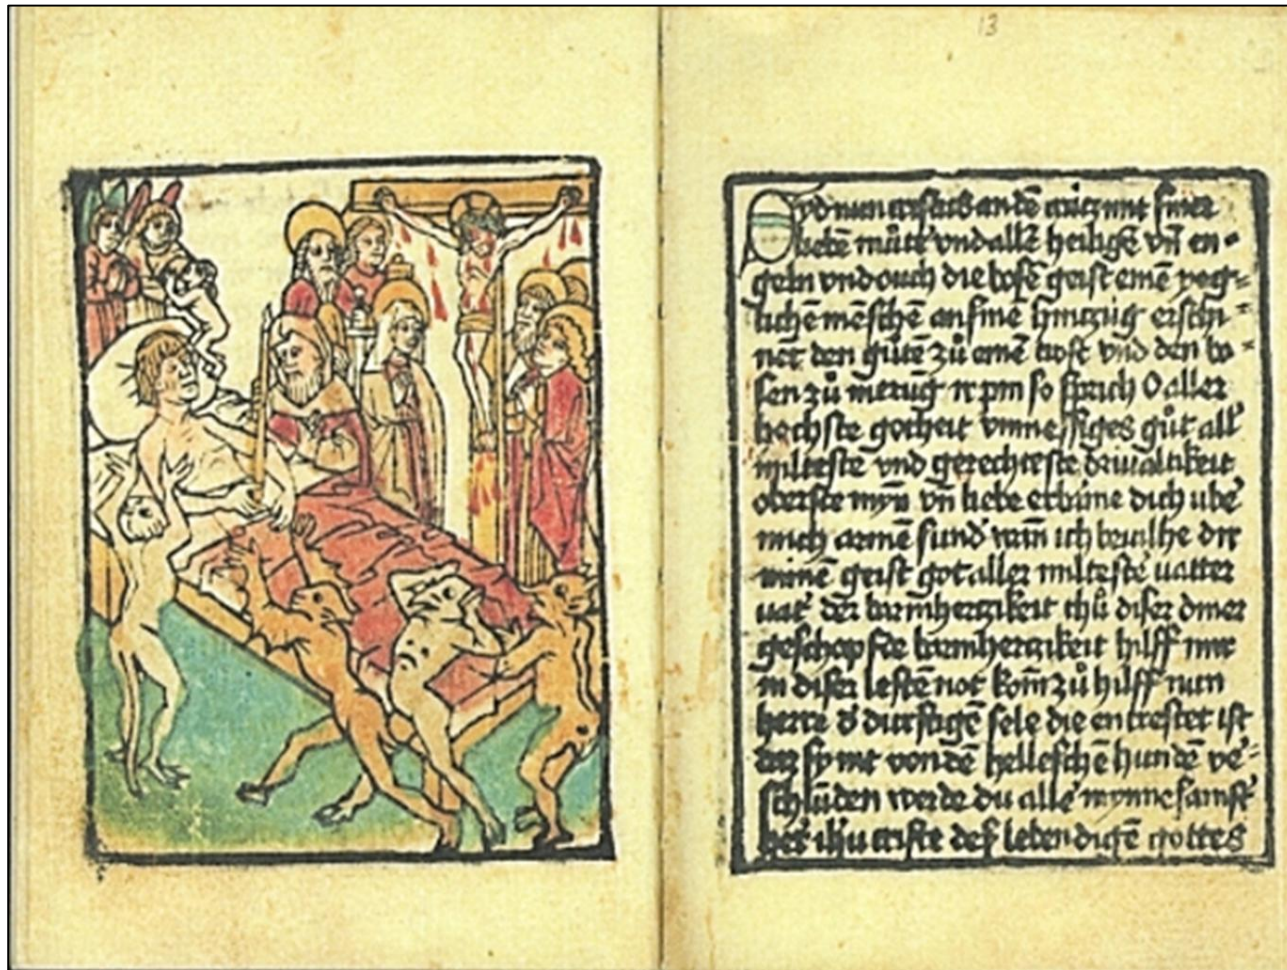 13
Syd nun cristus an dē crütz mit siner
liebē můtt' vnd allē heiligē vñ en=
geln vnd ouch die bosē geist einē yeg=
lichē mēschē an sinē hintzug erschi=
net den gůtē zů einē trost vnd den bo=
sen zů so sprich O aller
hochste gotheit vnmessiges gůt all'
milteste vnd gerechteste driualtikeit
oberste myñ vñ liebe erbāme dich ube'
mich armē sund' wañ ich beuilhe dir
minē geist got aller milteste' uatter
uat' der barmhertzikeit thů diser diner
geschopfde barmhertzikeit hilff mir
in diser lestē not kom̄ zů hilff nun
herre d' durstigē sele die entrestet ist
daz sy nit von dē hellschē hundē ve'=
schlūden werde du alle' mynnesamst'
her' ih'u criste des lebendigē gottes